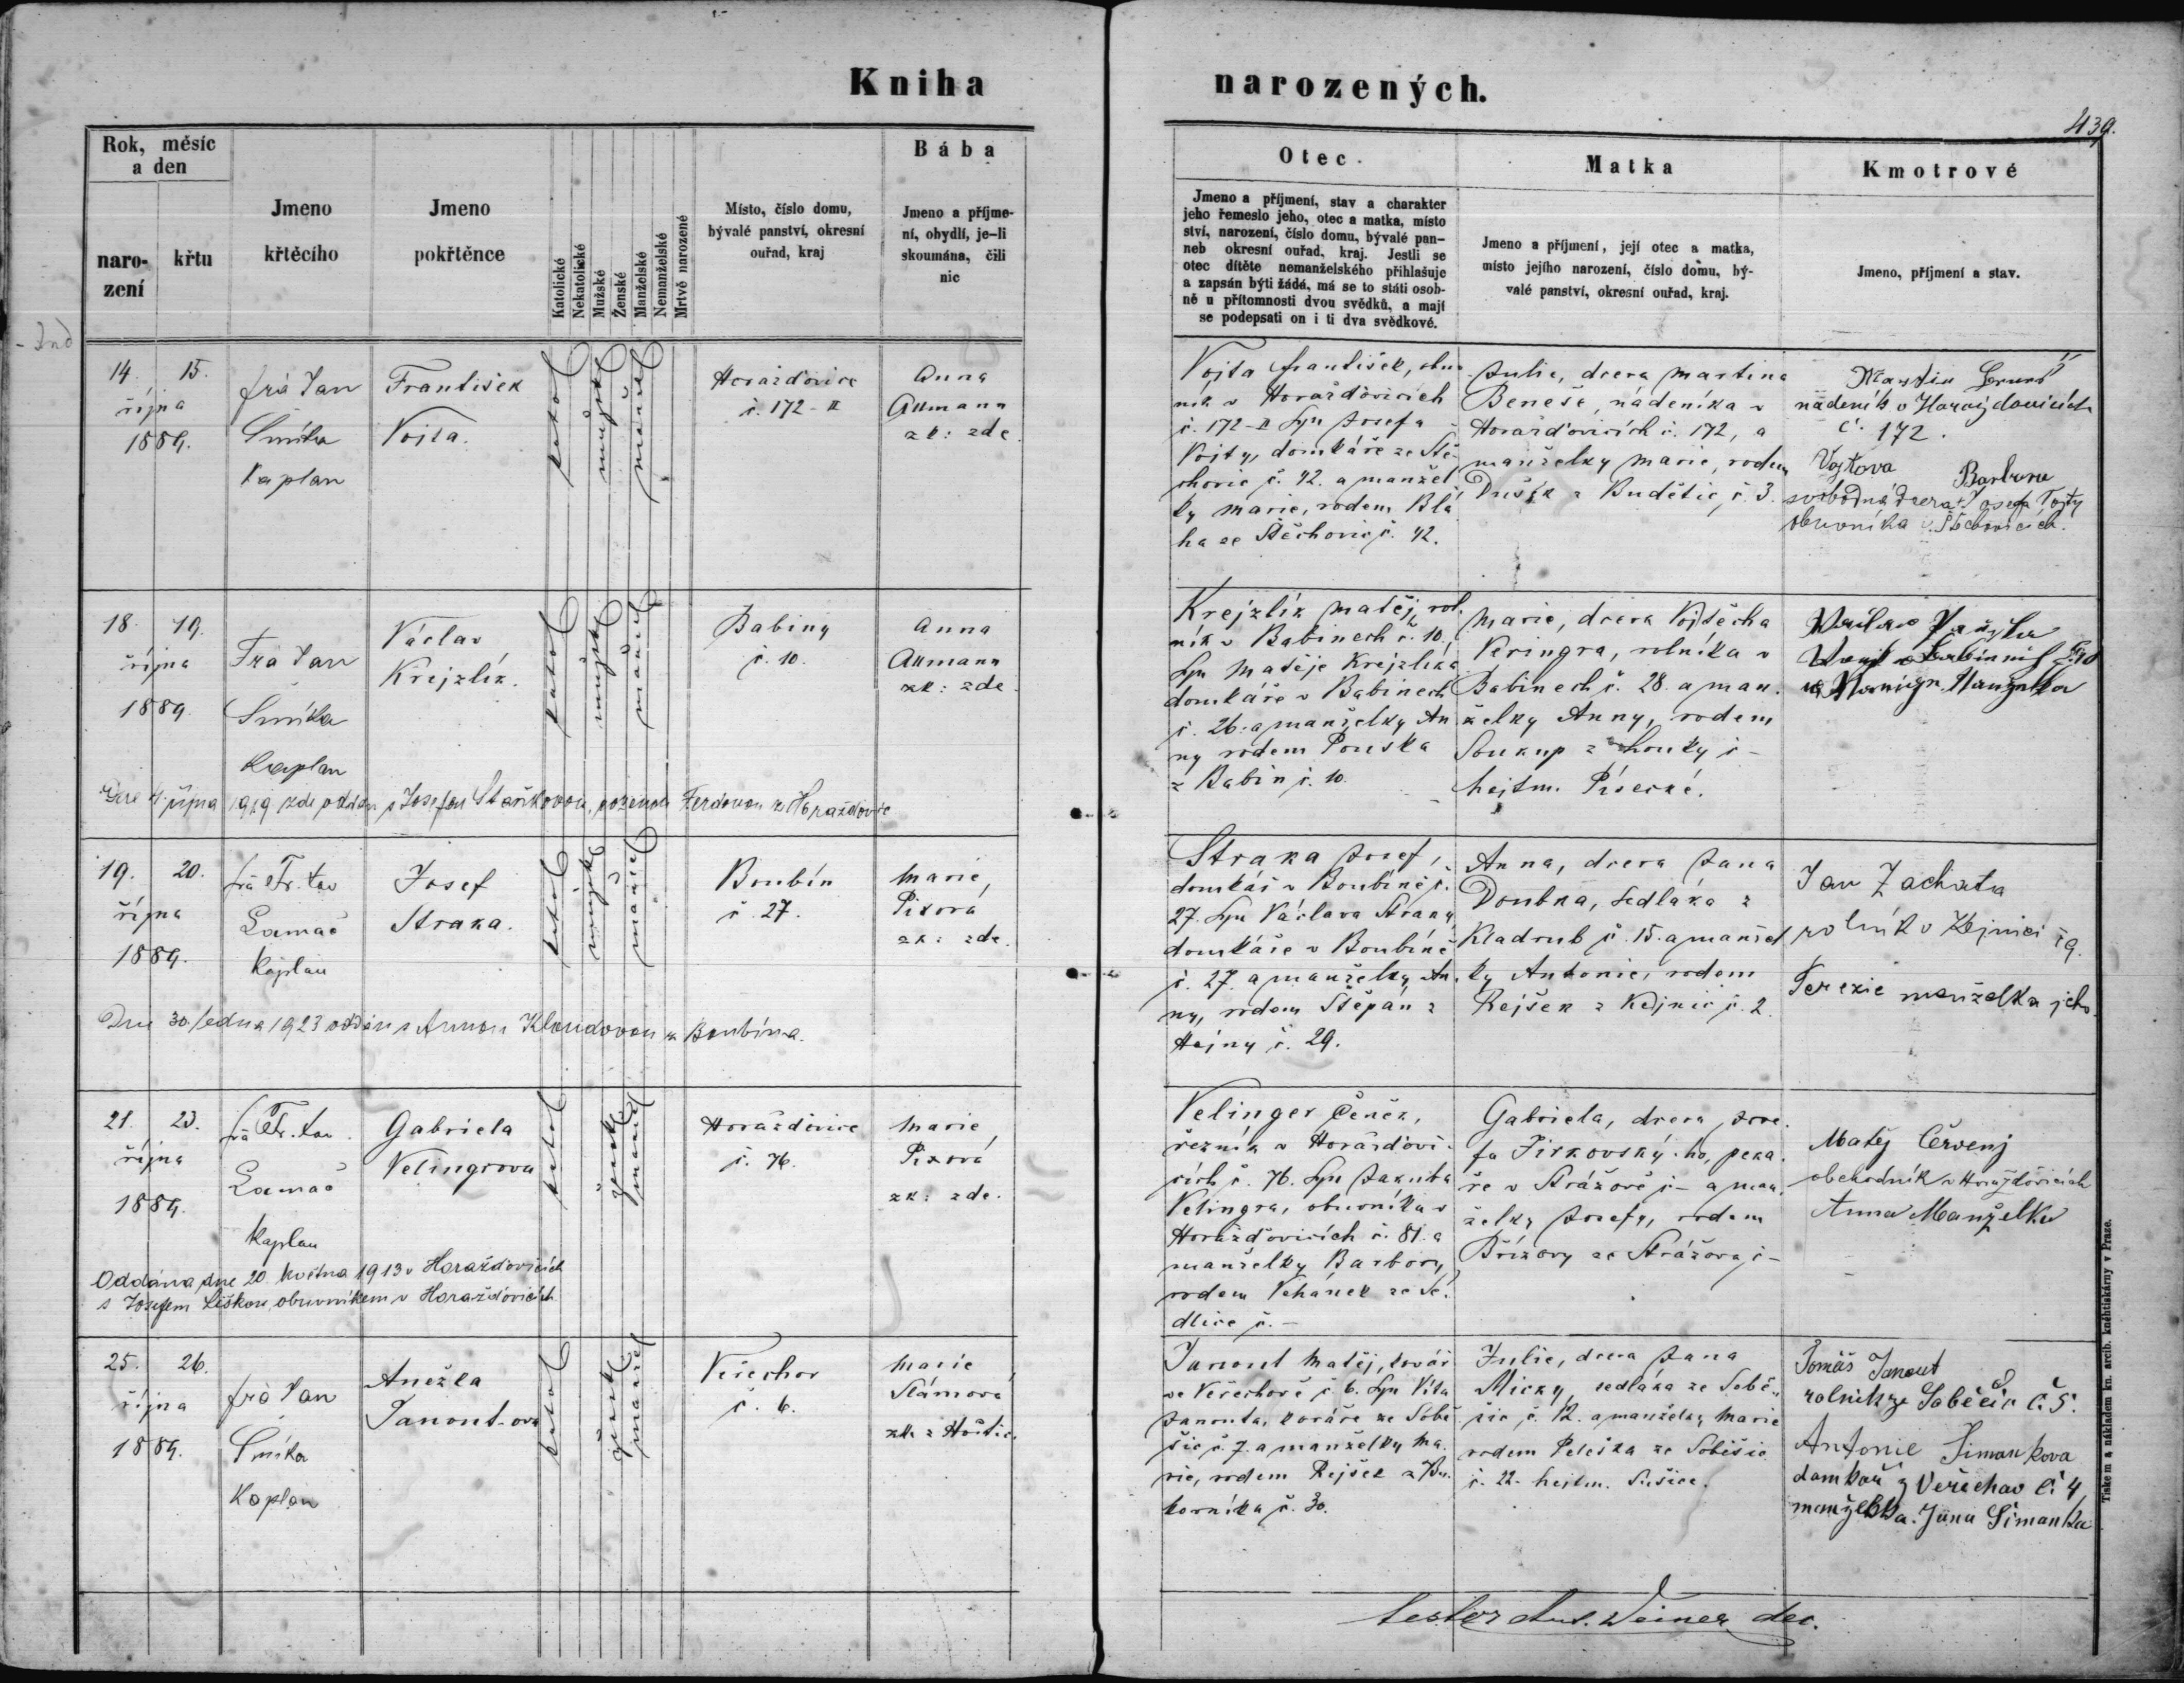 Kniha narozených.
439.
Rok, měsíc
a den
naro-
zení
křtu
Jmeno
křtěcího
Jmeno
pokřtěnce
Katolické
Nekatolické
Mužské
Ženské
Manželské
Nemanželské
Mrtvě narozené
Místo, číslo domu,
bývalé panství, okresní
ouřad, kraj
Bába
Jmeno a příjme-
ní, obydlí, je-li
skoumána, čili
nic
Otec.
Jmeno a příjmení, stav a charakter
jeho řemeslo jeho, otec a matka, místo
ství, narození, číslo domu, bývalé pan-
neb okresní ouřad, kraj. Jestli se
otec dítěte nemanželského přihlašuje
a zapsán býti žádá, má se to státi osob-
ně u přítomnosti dvou svědků, a mají
se podepsati on i ti dva svědkové.
Matka
Jmeno a příjmení, její otec a matka,
místo jejího narození, číslo domu, bý-
valé panství, okresní ouřad, kraj.
Kmotrové
Jmeno, příjmení a stav.
14. 15.
října
1889.
frà Jan
Smíka
Kaplan
František
Vojta.
katol
mužsk
manžel
Horažďovice
č. 172-II
Anna
Altmann
zk: zde.
Vojta František, obu-
ník v Horažďovicích
č. 172-II syn Josefa
Vojty, domkáře ze Stě-
chovic č. 42. a manžel
ky Marie, rodem Blá
ha ze Stěchovic č. 42.
Julie, dcera Martina
Beneše, nádeníka v
Horažďovicích č. 172, a
manželky Marie, rodem
Dušek z Budětic č. 3.
Martin
nádeník v Horažďovicích
č. 172.
Vojtova Barbora
svobodná dcera Josefa Vojty
obuvníka v Stěchovicích.
18. 19.
října
1889.
Frà Jan
Smíka
Kaplan
Václav
Krejzlík.
katol
mužsk
manžel
Babiny
č. 10.
Anna
Altmann
zk: zde.
Krejzlík Matěj, rol
ník v Babinech č. 10,
syn Matěje Krejzlíka
domkáře v Babinech
č. 26. a manželky An
ny rodem Pouska
z Babin č. 10.
Marie, dcera Vojtěcha
Veringra, rolníka v
Babinech č. 28. a man-
želky Anny, rodem
Soukup z Louky č –
hejtm. Písecké.
Václav
Dne 4. října 1919 zde oddán s Josefou Staňkovou, Ferdovou z Horažďovic
19. 20.
října
1889.
frà Fr. tav
Lamač
Kaplan
Josef
Straka.
katol
mužsk
manžel
Boubín
č. 27.
Marie,
Pixová
zk: zde.
Straka Josef,
domkář v Boubíně č.
27. syn Václava Straky
domkáře v Boubíně
č. 27. a manželky An-
ny, rodem Štěpán z
Hájny č. 29.
Anna, dcera Jana
Doubka, sedláka z
Kladrub č. 15. a manžel
ky Antonie, rodem
Rejšek z Kejnic č. 2.
Jan Zachata
rolník v Kejnici č 9.
Terezie manželka jeho.
Dne 30. ledna 1923 oddán s Annou Kloudovou z Boubína.
21. 23.
října
1889.
frà Fr. tav.
Lamač
Kaplan
Gabriela
Velingrova
katol
žensk
manžel
Horažďovice
č. 76.
Marie,
Pixová
zk: zde.
Velinger Čeněk,
řezník v Horažďovi-
cích č. 76. syn Jakuba
Velingra, obuvníka v
Horažďovicích č. 81. a
manželky Barbory,
rodem Vehánek ze Se-
dlice č. –
Gabriela, dcera Jose-
fa Pirkovský-ho, peka-
ře v Strážově č – a man-
želky Josefy, rodem
Břízovy ze Strážova č –
Matěj Červený
obchodník v Horažďovicích
Anna Manželka
Oddána dne 20. května 1913 v Horažďovicích
s Josefem Liškou, obuvníkem v Horažďovicích
25. 26.
října
1889.
frà Jan
Smíka
Kaplan
Anežka
Janout-ova
katol
žensk
manžel
Veřechov
č. 6.
Marie
Slámová
zk. z Hoštic.
Janout Matěj, kovář
ve Veřechově č. 6. syn Víta
Janouta, kováře ze Sobě
šic č. 7. a manželky Ma-
rie, rodem Rejšek z Bu-
korníka č. 30.
Julie, dcera Jana
Micky, sedláka ze Sobě-
šic č. 12. a manželky Marie
rodem Peleška ze Soběšic
č. 22. hejtm. Sušice.
Tomáš Janout
rolník ze Soběšic č 5.
Antonie Simankova
domkař z Veřechov č. 4
manželka. Jana Šimanka
testor Ant. Weiner dec.
Tiskem a nákladem kn. arcib. knihtiskárny v Praze.